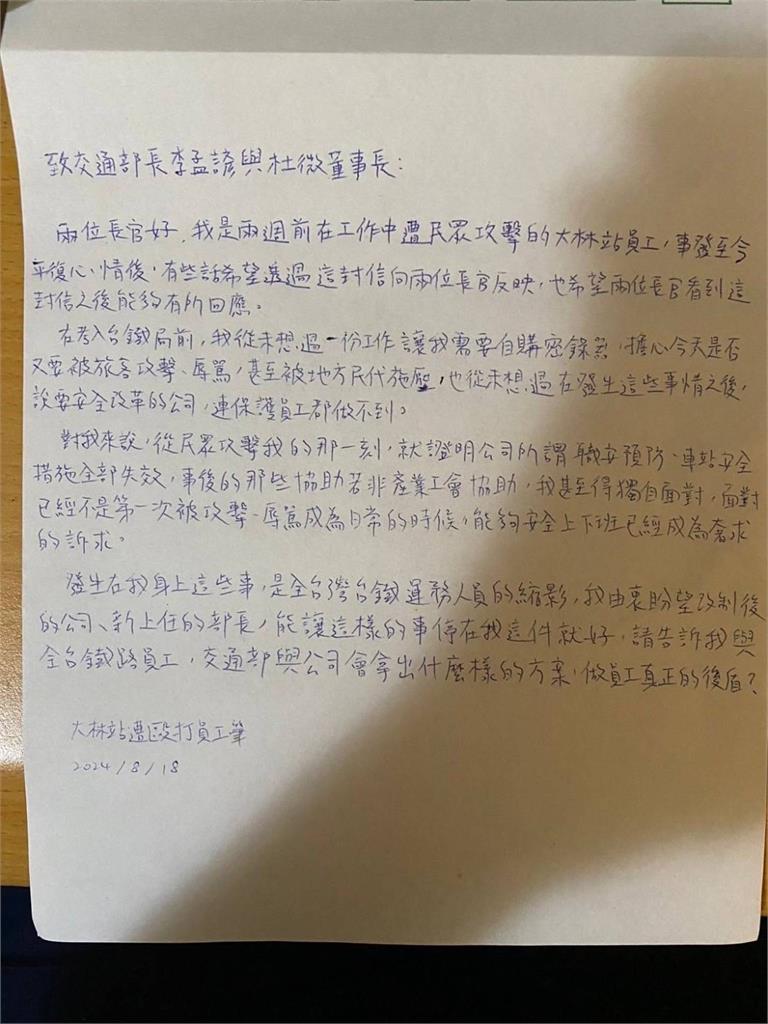 致交通部長李孟諺與杜微董事長:
兩位長官好,我是兩週前在工作中遭民眾攻擊的大林站員工,事發至今
平復心情後,有些話希望透過這封信向兩位長官反映,也希望兩位長官看到這
封信之後能夠有所回應。
在考入台鐵局前,我從未想過一份工作讓我需要自購密錄器,擔心今天是否
又要被旅客攻擊、辱罵,甚至被地方民代施壓,也從未想過在發生這些事情之後,
說要安全改革的公司,連保護員工都做不到。
對我來說,從民眾攻擊我的那一刻,就證明公司所謂職安預防、車站安全
措施全部失效,事後的那些協助若非產業工會協助,我甚至得獨自面對,面對
已經不是第一次被攻擊、辱罵成為日常的時候,能夠安全上下班已經成為奢求
的訴求。
發生在我身上這些事,是全台灣台鐵運務人員的縮影,我由衷盼望改制後
的公司、新上任的部長,能讓這樣的事停在我這件就好,請告訴我與
全台鐵路員工,交通部與公司會拿出什麼樣的方案,做員工真正的後盾?
大林站遭毆打員工筆
2024/8/18